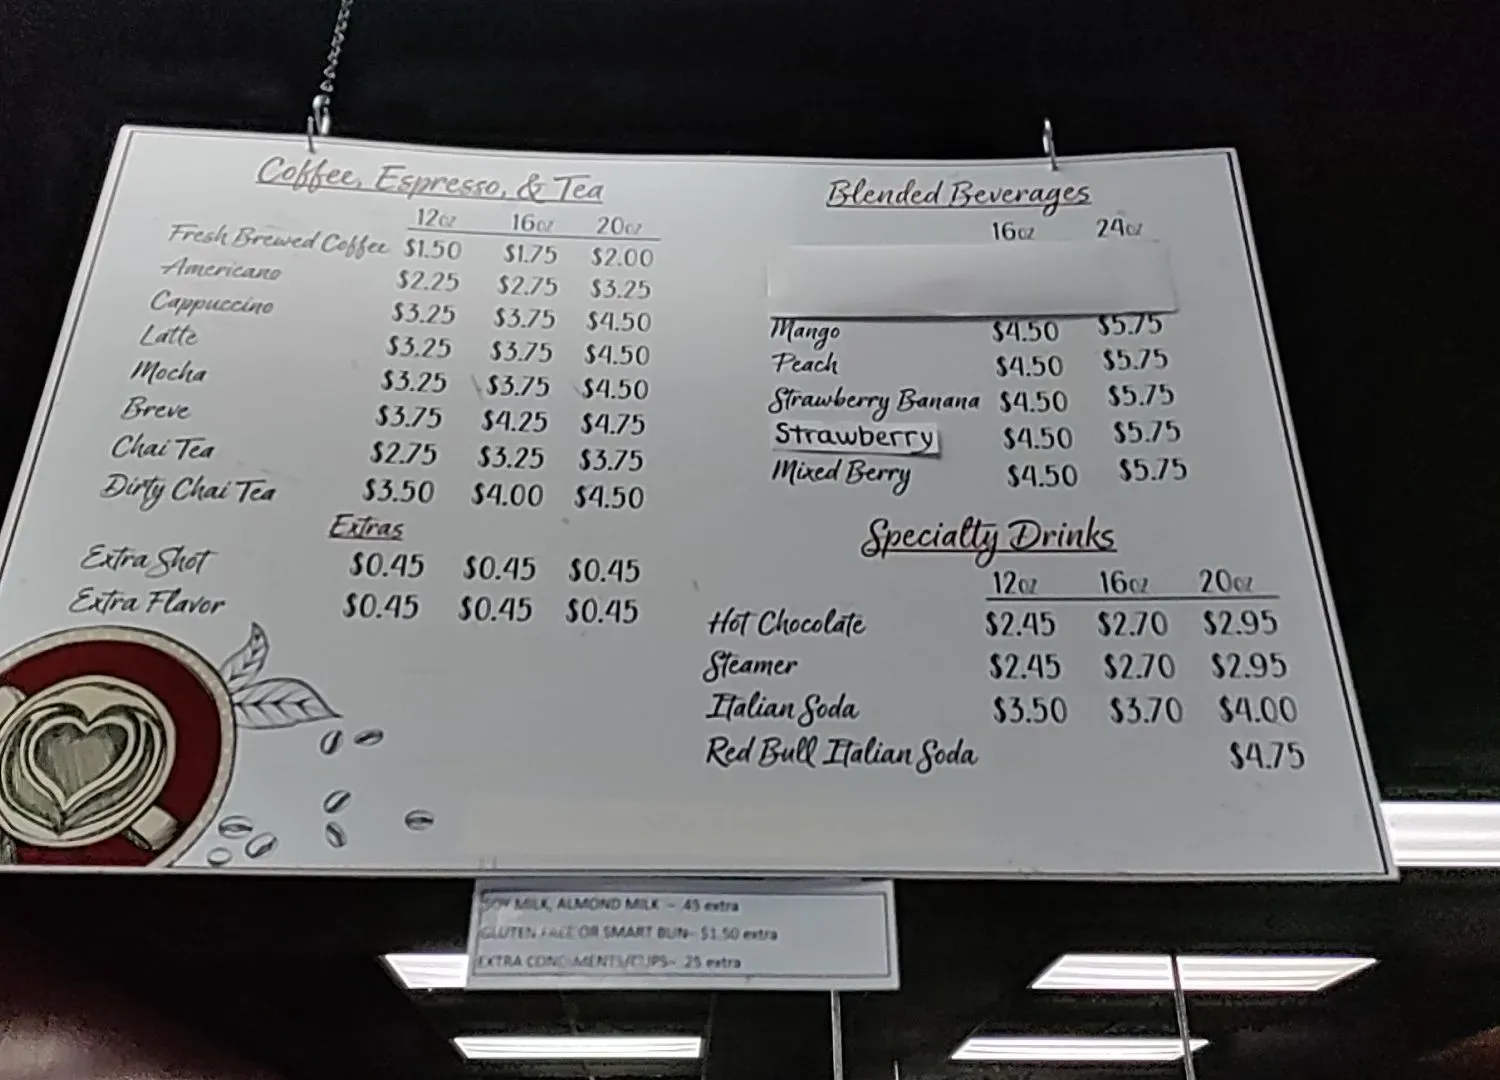 Coffee, Espresso, & Tea
12oz 16oz 20oz
Fresh Brewed Coffee $1.50 $1.75 $2.00
Americano $2.25 $2.75 $3.25
Cappuccino $3.25 $3.75 $4.50
Latte $3.25 $3.75 $4.50
Mocha $3.25 $3.75 $4.50
Breve $3.75 $4.25 $4.75
Chai Tea $2.75 $3.25 $3.75
Dirty Chai Tea $3.50 $4.00 $4.50
Extras
Extra Shot $0.45 $0.45 $0.45
Extra Flavor $0.45 $0.45 $0.45
Blended Beverages
16oz 24oz
Mango $4.50 $5.75
Peach $4.50 $5.75
Strawberry Banana $4.50 $5.75
Strawberry $4.50 $5.75
Mixed Berry $4.50 $5.75
Specialty Drinks
12oz 16oz 20oz
Hot Chocolate $2.45 $2.70 $2.95
Steamer $2.45 $2.70 $2.95
Italian Soda $3.50 $3.70 $4.00
Red Bull Italian Soda $4.75
SOY MILK, ALMOND MILK - .45 extra
GLUTEN FREE OR SMART BUN- $1.50 extra
EXTRA CONDIMENTS/CUPS- .25 extra